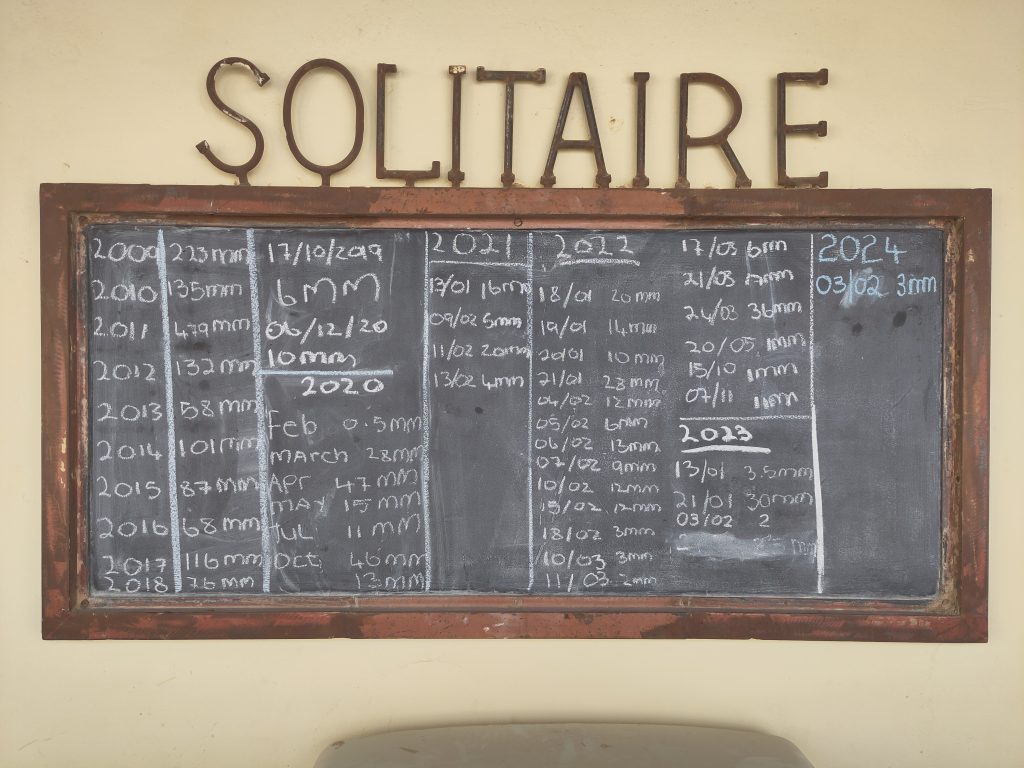 SOLITAIRE
2009 223mm
2010 135mm
2011 479mm
2012 132mm
2013 58mm
2014 101mm
2015 87mm
2016 68mm
2017 116mm
2018 76mm
17/10/2019
6MM
06/12/20
10mm
2020
Feb 0.5mm
MARCH 28mm
APR 47mm
MAY 15mm
JUL 11mm
Oct 46mm
13mm
2021
13/01 16mm
09/02 5mm
11/02 20mm
13/02 4mm
2022
18/01 20mm
19/01 14mm
20/01 10mm
21/01 28mm
04/02 12mm
05/02 6mm
06/02 13mm
07/02 9mm
10/02 12mm
15/02 12mm
18/02 3mm
10/03 3mm
11/03 2mm
17/03 6mm
21/03
24/03 36mm
20/05 1mm
15/10 1mm
07/11 11mm
2023
13/01 3.5mm
21/01 30mm
03/02 2
mm
2024
03/02 3mm